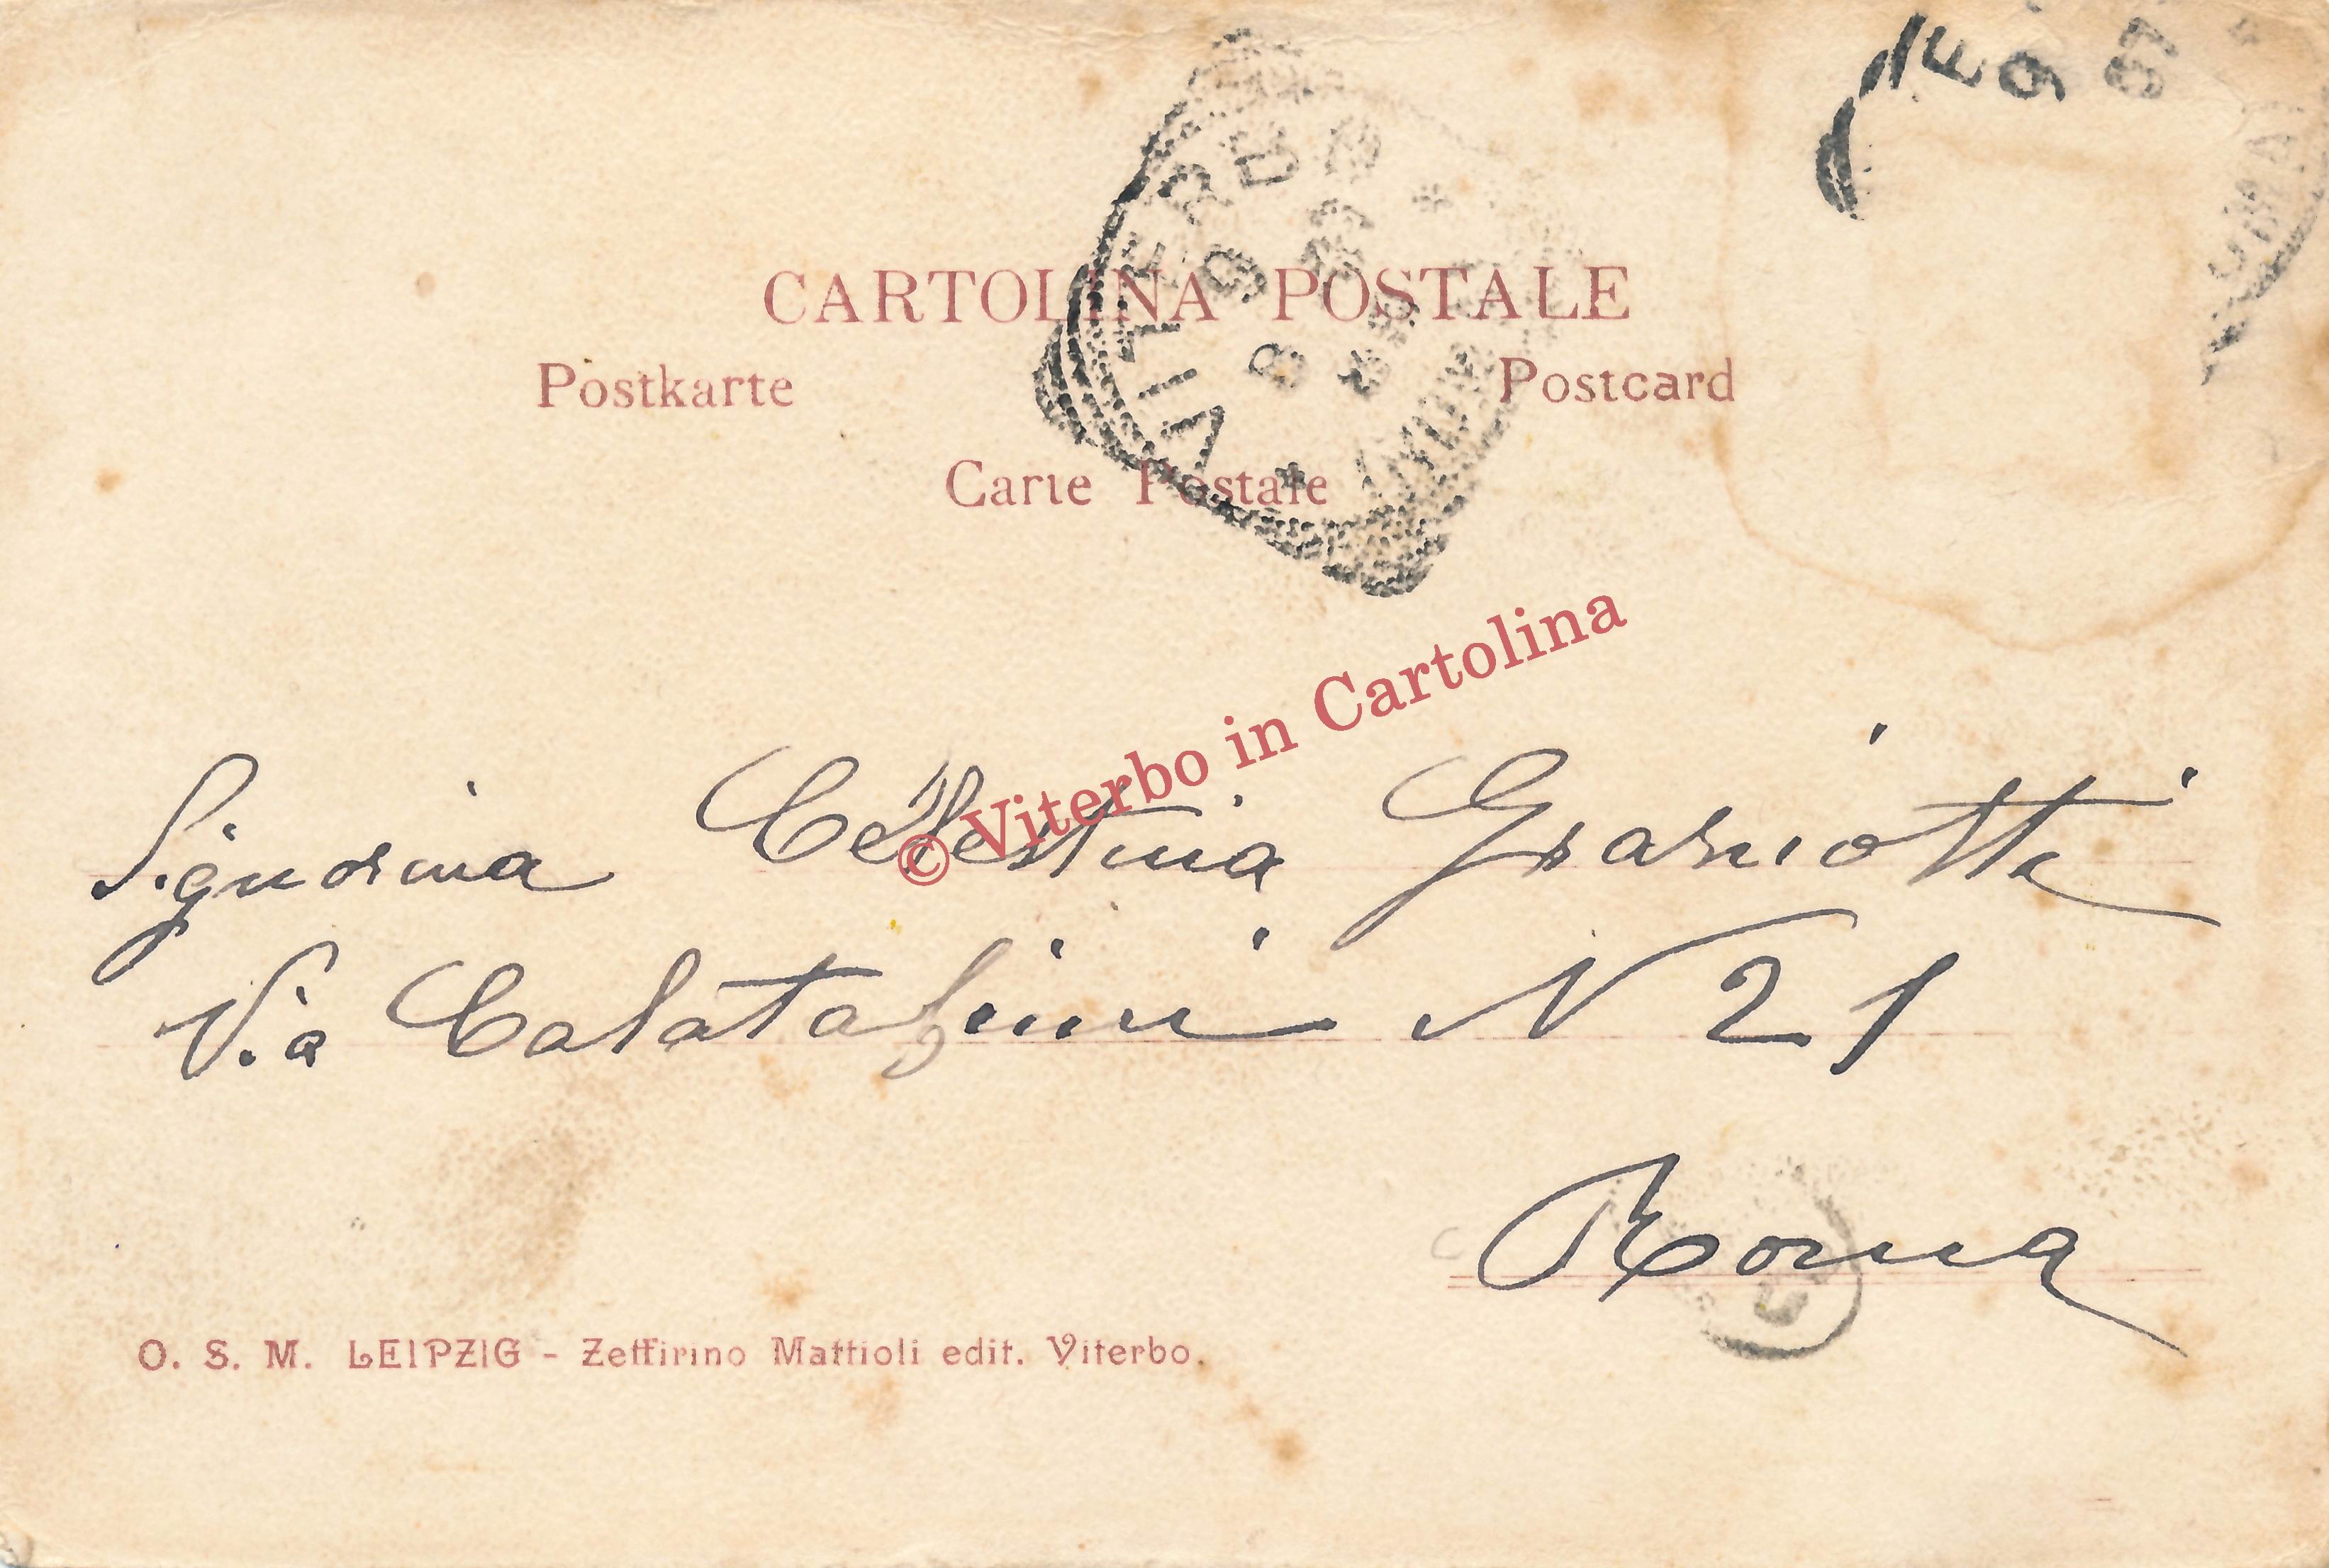 CARTOLINA POSTALE
Postkarte
Postcard
Carte Postale
VITERBO
8
9
07
© Viterbo in Cartolina
Signorina Celestina Grasniotti
Via Calatafimi N 21
Roma
O. S. M. LEIPZIG - Zeffirino Mattioli edit. Viterbo.